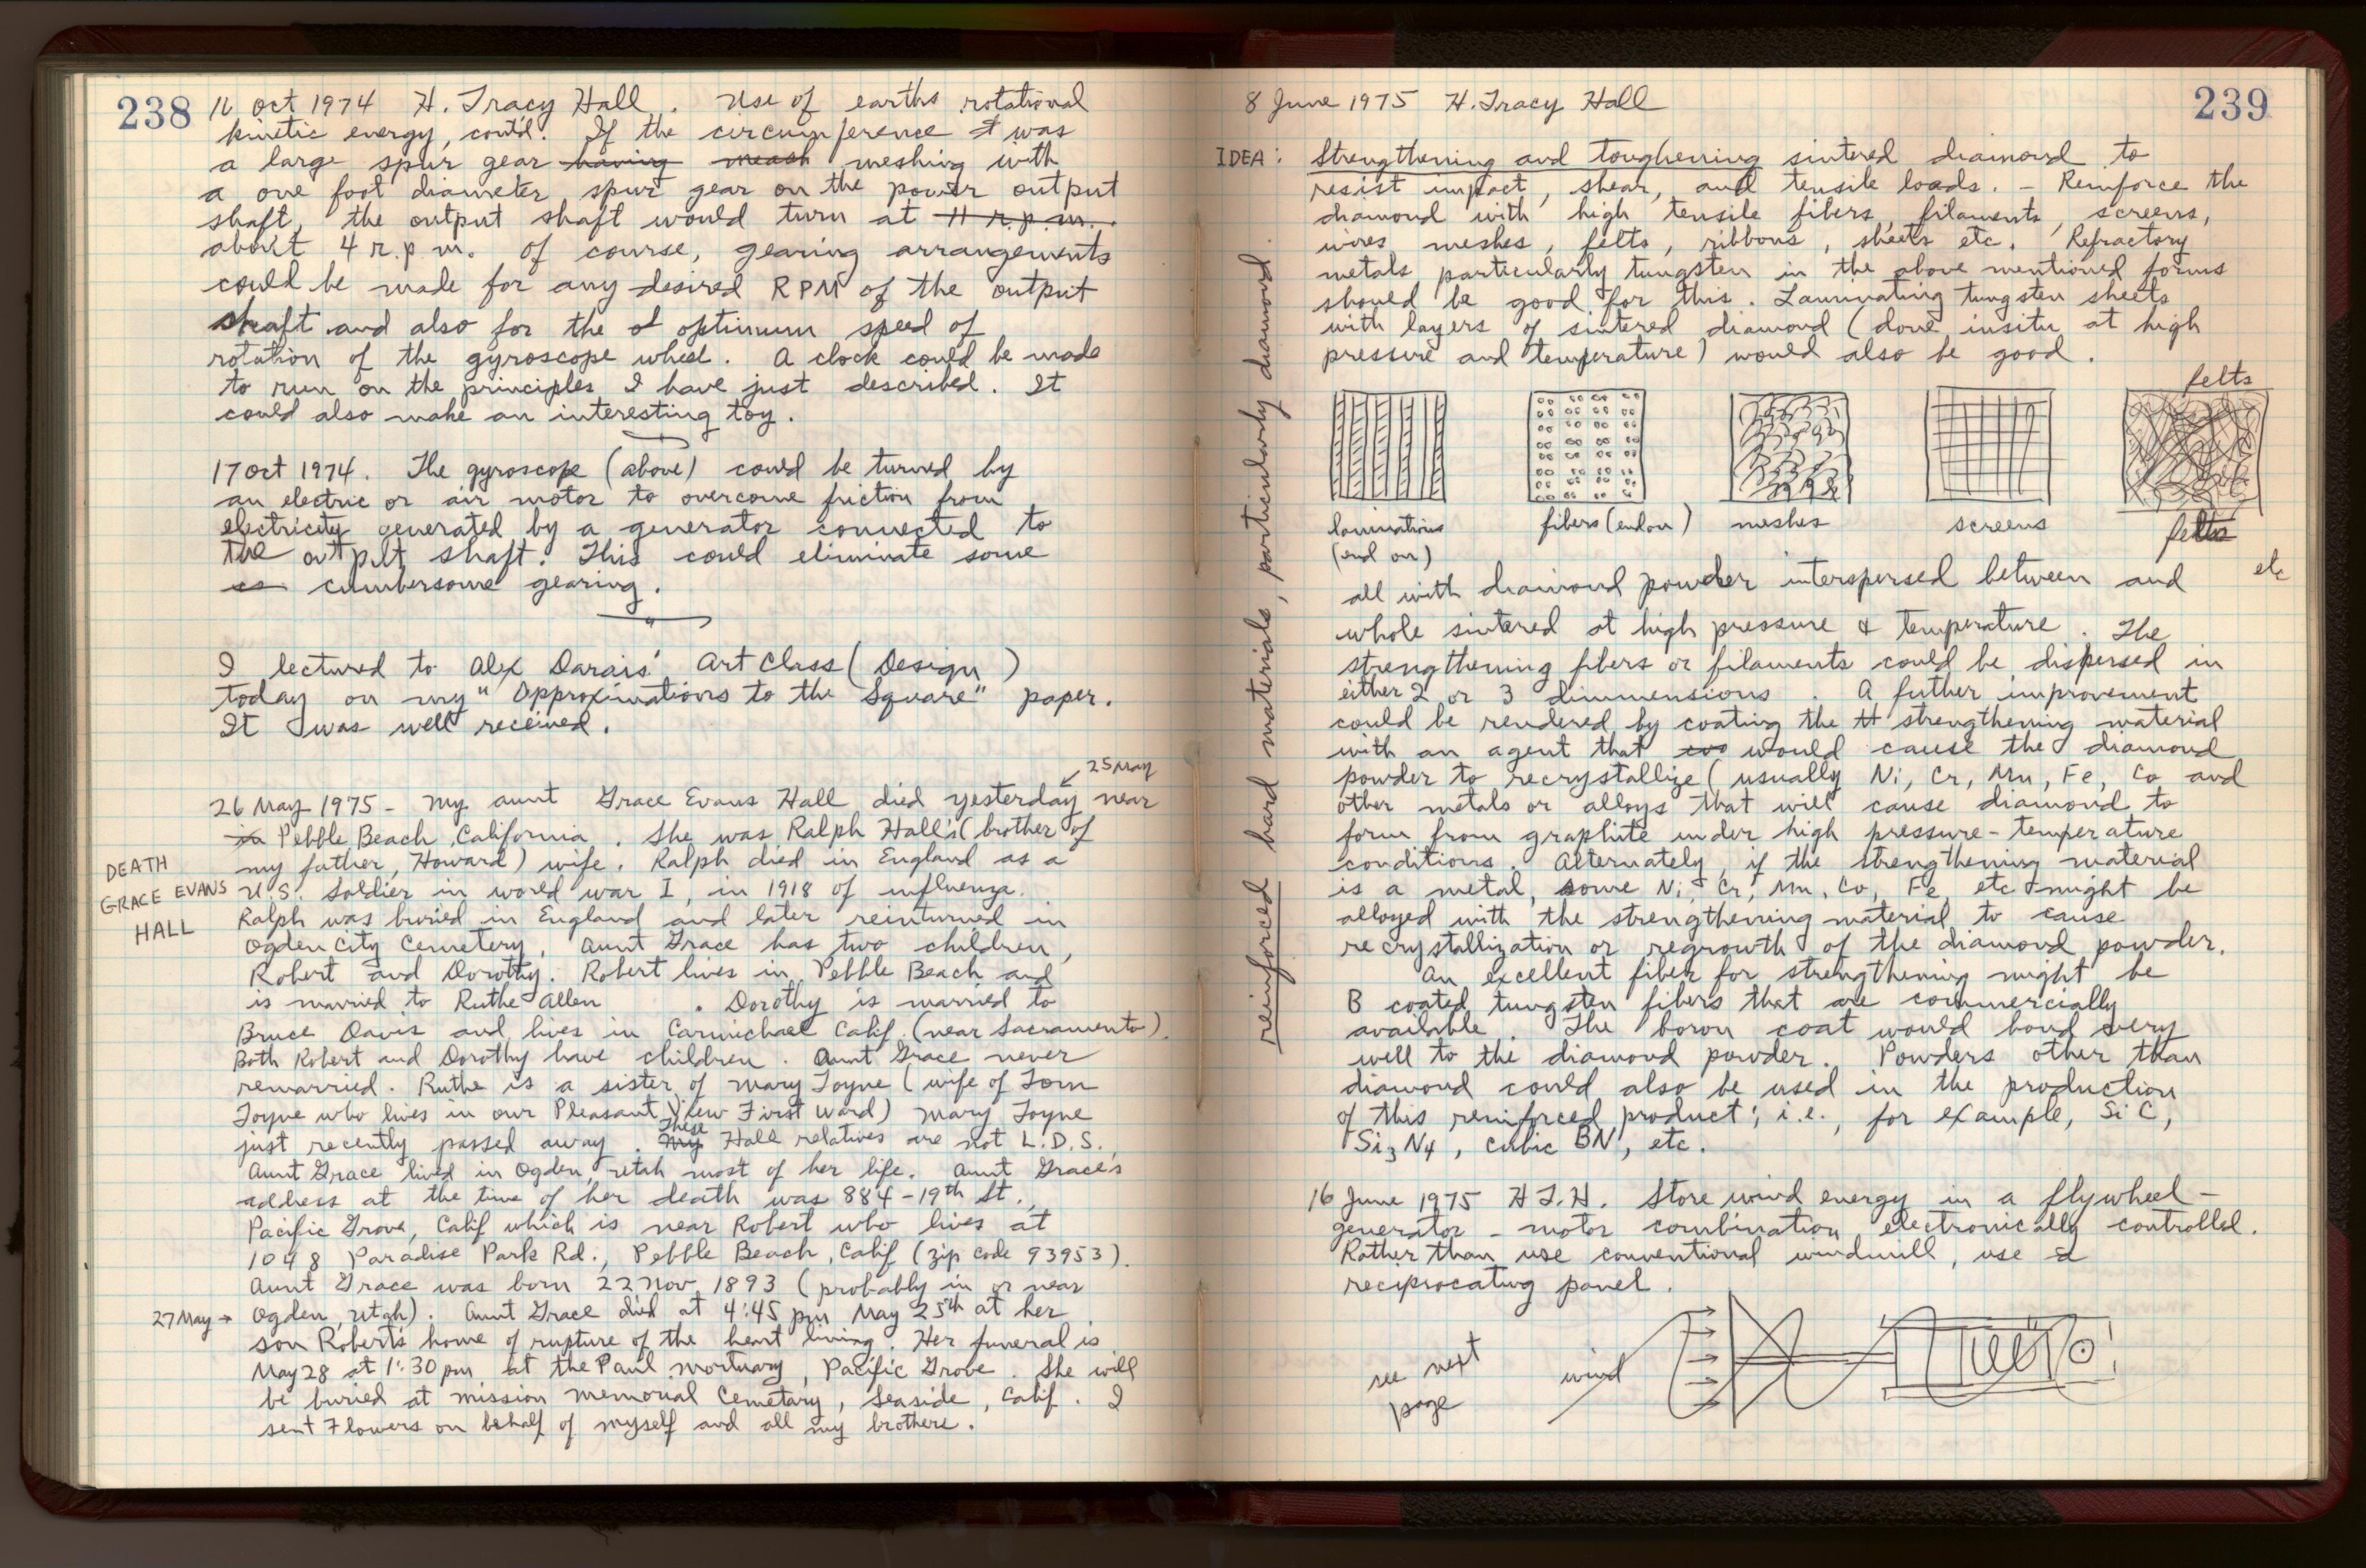 238
16 Oct 1974 H. Tracy Hall. Use of earths rotational
kinetic energy, contd. If the circumference was
a large spur gear having meash meshing with
a one foot diameter spur gear on the power output
shaft, the output shaft would turn at 11 r.p.m.
about 4 r.p.m. Of course, gearing arrangements
could be made for any desired RPM of the output
shaft and also for the optimum speed of
rotation of the gyroscope wheel. A clock could be made
to run on the principles I have just described. It
could also make an interesting toy.
17 Oct 1974. The gyroscope (above) could be turned by
an electric or air motor to overcome friction from
electricity generated by a generator connected to
the output shaft. This could eliminate some
cumbersome gearing.
I lectured to Alex Darais' Art Class (Design)
today on my "Approximations to the Square" paper.
It was well received.
25 May
26 May 1975 - My aunt Grace Evans Hall died yesterday near
in Pebble Beach, California. She was Ralph Hall's (brother of
my father, Howard) wife. Ralph died in England as a
DEATH
GRACE EVANS
HALL
U.S. Soldier in world war I, in 1918 of influenza.
Ralph was buried in England and later reinturned in
Ogden City Cemetery. Aunt Grace has two children,
Robert and Dorothy. Robert lives in Pebble Beach and
is married to Ruthe Allen . Dorothy is married to
Bruce Davis and lives in Carmichael Calif. (near Sacramento).
Both Robert and Dorothy have children. Aunt Grace never
remarried. Ruthe is a sister of Mary Toyne (wife of Tom
Toyne who lives in our Pleasant View First Ward) Mary Toyne
just recently passed away. My These Hall relatives are not L.D.S.
Aunt Grace lived in Ogden, Utah most of her life. Aunt Grace's
address at the time of her death was 884-19th St.,
Pacific Grove, Calif which is near Robert who lives at
1048 Paradise Park Rd., Pebble Beach, Calif (zip code 93953).
Aunt Grace was born 22 Nov 1893 (probably in or near
27 May → Ogden, Utah). Aunt Grace died at 4:45 pm May 25th at her
son Robert's home of rupture of the heart lining. Her funeral is
May 28 at 1:30 pm at the Paul Mortuary, Pacific Grove. She will
be buried at Mission Memorial Cemetary, Seaside, Calif. I
sent Flowers on behalf of myself and all my brothers.
239
8 June 1975 H. Tracy Hall
IDEA: Strengthening and toughening sintered diamond to
resist impact, shear, and tensile loads. - Reinforce the
diamond with high tensile fibers, filaments, screens,
wires meshes, felts, ribbons, sheets etc. Refractory
metals particularly tungsten in the above mentioned forms
should be good for this. Laminating tungsten sheets
with layers of sintered diamond (done insitu at high
pressure and temperature) would also be good.
reinforced hard materials, particularly diamond.
felts
laminations
(end on)
fibers (end on)
meshes
screens
felts
etc
all with diamond powder interspersed between and
whole sintered at high pressure & temperature. The
strengthening fibers or filaments could be dispersed in
either 2 or 3 dimmensions. A futher improvement
could be rendered by coating the strengthening material
with an agent that would cause the diamond
powder to recrystallize (usually Ni, Cr, Mn, Fe, Co and
other metals or alloys that will cause diamond to
form from graphite under high pressure-temperature
conditions. Alternately, if the strengthening material
is a metal, some Ni, Cr, Mn, Co, Fe, etc might be
alloyed with the strengthening material to cause
recrystallization or regrowth of the diamond powder.
An excellent fiber for strengthening might be
B coated tungsten fibers that are commercially
available. The boron coat would bond very
well to the diamond powder. Powders other than
diamond could also be used in the production
of this reinforced product; i.e., for example, SiC,
Si3N4, cubic BN, etc.
16 June 1975 H T.H. Store wind energy in a flywheel-
generator-motor combination electronically controlled.
Rather than use conventional windmill, use a
reciprocating panel.
see next
page
wind